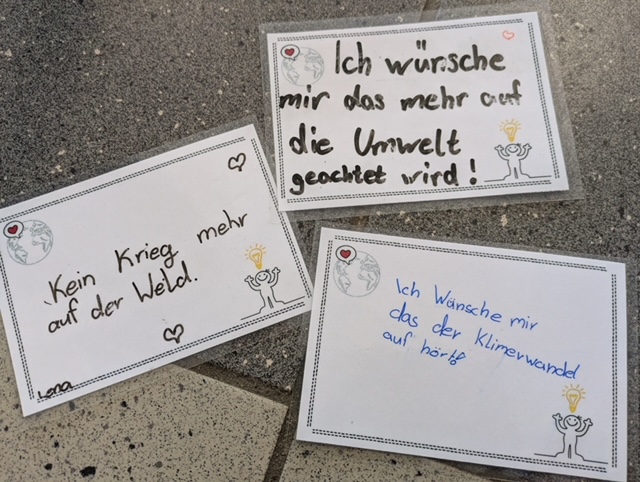 Ich wünsche
mir das mehr auf
die Umwelt
geachtet wird!
Kein Krieg mehr
auf der Weld.
Lena
Ich Wünsche mir
das der Klimerwandel
auf hört